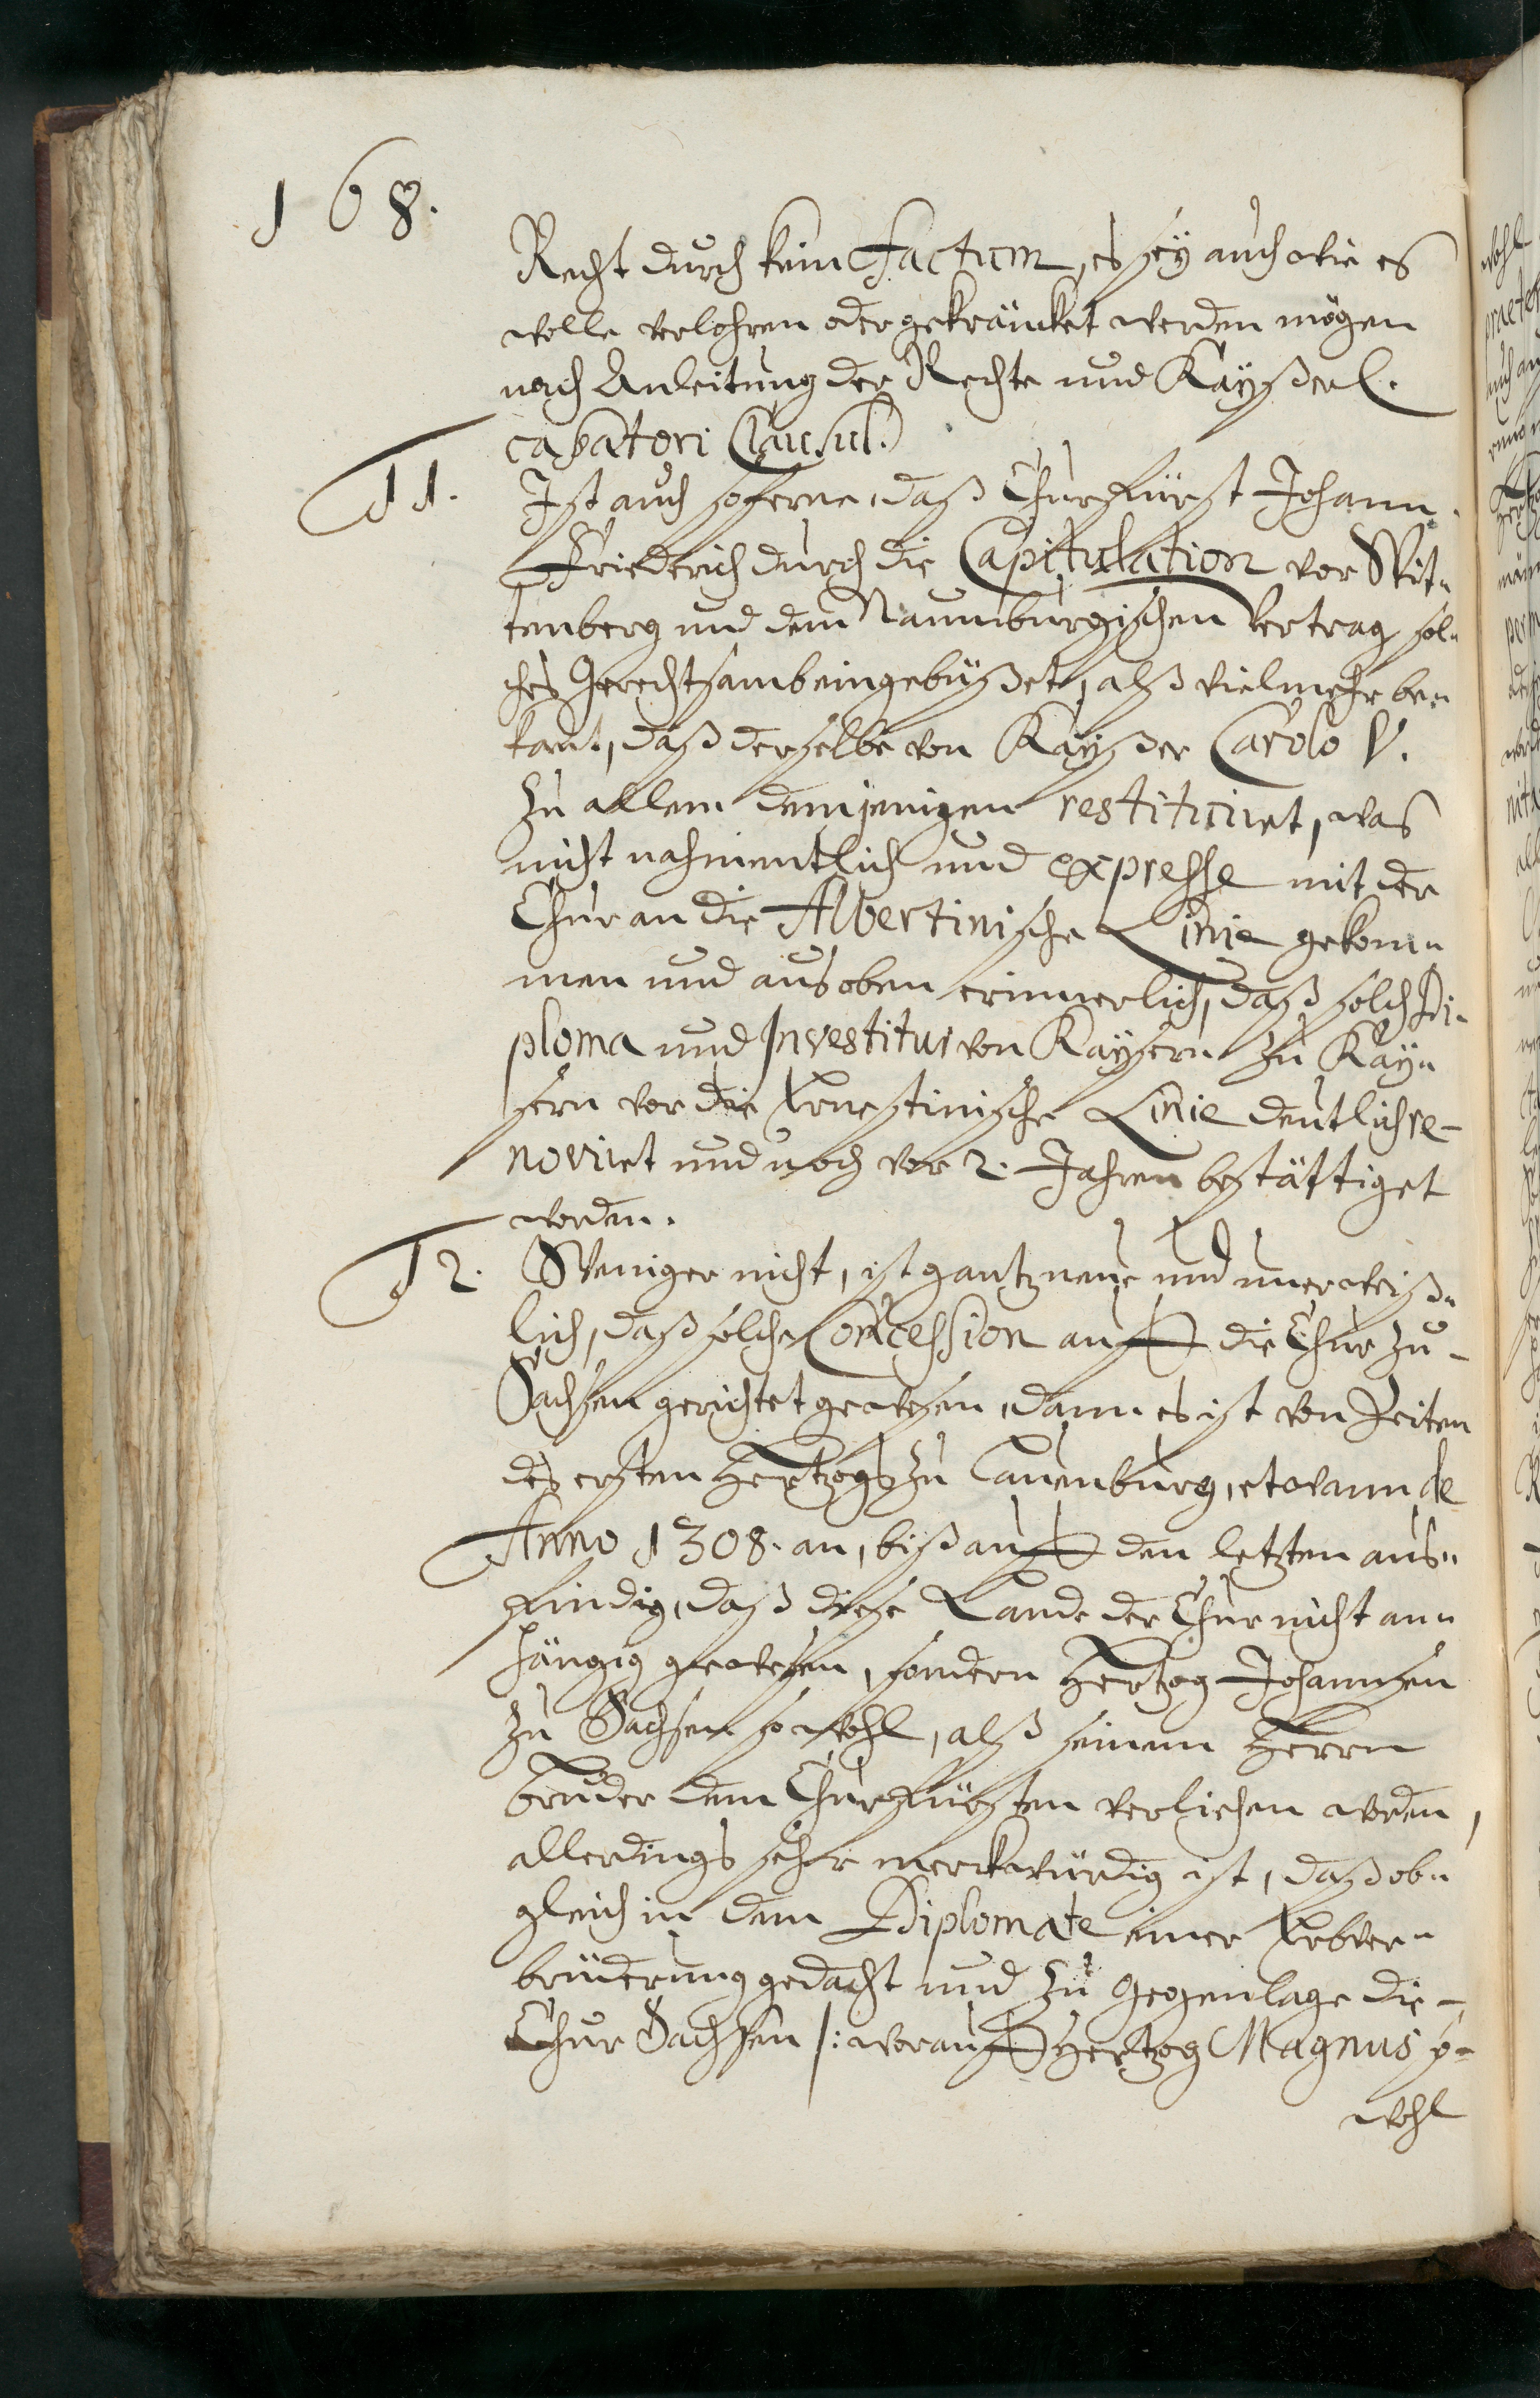 168.
Recht durch kein factum, es seÿ auch wie es
wolle verlohren oder gekräncket werden mögen
nach Anleitung der Rechte und Kaÿßerl.
cassatori Clausul.
11. Ist auch soferne, daß ChurFürst Johann
Friederich durch die Capitulation vor Wit-
tenberg und dem Naumburgischen Vertrag sol-
ches Gerechtsamb eingebüßet, alß vielmehr be-
kant, daß derselbe von Kaÿßer Carolo V.
zu allem demjenigen restituiret, was
nicht nahmentlich und expresse mit der
Chur an die Albertinische Linie gekom-
men und aus oben erinnerlich, daß solch Di-
ploma und Investitur von Kaÿsern zu Kaÿ-
sern vor die Ernestinische Linie deutlich re-
noviret und noch vor 2. Jahren bestättiget
worden.
12. Weniger nicht, ist gantz neue und unerweiß-
lich, daß solche Concession auff die Chur zu-
Sachsen gerichtet gewesen, dann es ist von Zeiten
des ersten Hertzogs zu Lauenburg, etwann de
Anno 1308. an, biß auff den letzten aus-
findig, daß diese Lande der Chur nicht an-
hängig gewesen, sondern Hertzog Johannsen
zu Sachsen so wohl, alß seinem Herrn
Bruder dem Churfürsten verliehen worden,
allerdings sehr merckwürdig ist, daß ob-
gleich in dem Diplomate einer Erbver-
brüderung gedacht und zu Gegenlage die-
Chur Sachsen /: worauff Hertzog Magnus so-
wohl